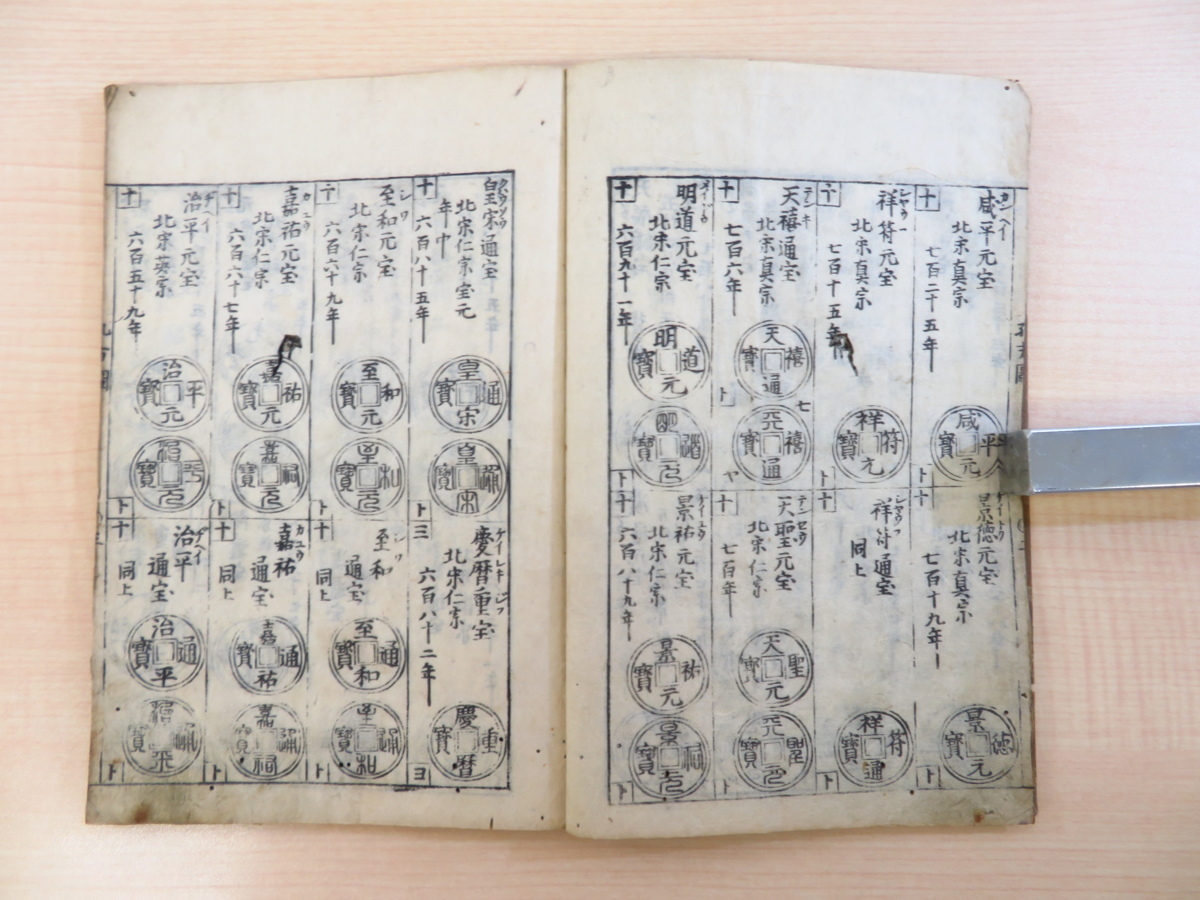 十
咸平元宝
北宋真宗
七百二十五年
咸平元寳
ト
十
景徳元宝
ケイトク
北宋真宗
七百十九年
景徳元寳
ト
十
祥符元宝
北宋真宗
七百十五年
祥符元寳
ト
十
祥符通宝
同上
祥符通寳
ト
十
天禧通宝
テンキ
北宋真宗
七百六年
天禧通寳
天禧通寳
ト
七
ヤ
十
天聖元宝
北宋仁宗
七百年
天聖元寳
天聖元寳
ト
十
明道元宝
北宋仁宗
六百九十一年
明道元寳
明道元寳
ト
十
景祐元宝
北宋仁宗
六百八十九年
景祐元寳
景祐元寳
ト
十
皇宋通宝
北宋仁宗宝元
年中
六百八十五年
皇宋通寳
皇宋通寳
ト
三
慶暦重宝
北宋仁宗
六百八十二年
慶暦重寳
ヨ
十
至和元宝
シワ
北宋仁宗
六百六十九年
至和元寳
至和元寳
ト
十
至和
シワ
通宝
同上
至和通寳
至和通寳
ト
十
嘉祐元宝
カユウ
北宋仁宗
六百六十七年
嘉祐元寳
嘉祐元寳
ト
十
嘉祐
カユウ
通宝
同上
嘉祐通寳
嘉祐通寳
ト
十
治平元宝
チヘイ
北宋英宗
六百五十九年
治平元寳
治平元寳
ト
十
治平
チヘイ
通宝
同上
治平通寳
治平通寳
ト